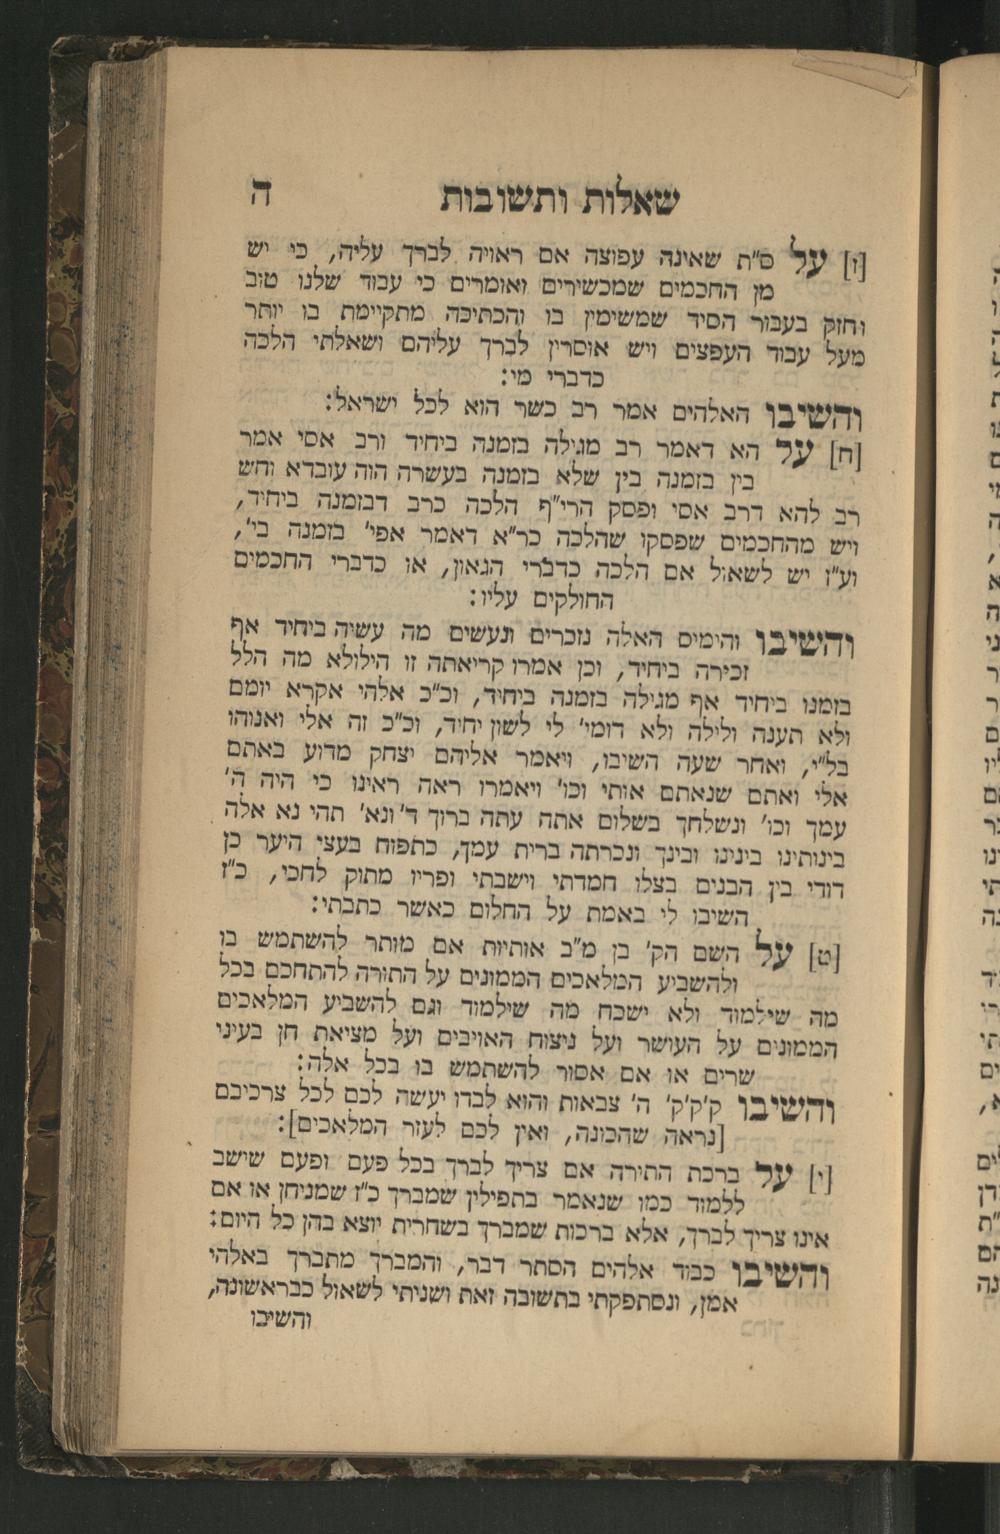 שאלות ותשובות ה
[ז] על ס"ת שאינה עפוצה אם ראויה לברך עליה, כי יש
מן החכמים שמכשירים ואומרים כי עבוד שלנו טוב
וחזק בעבור הסיד שמשימין בו והכתיבה מתקיימת בו יותר
מעל עבוד העפצים ויש אוסרין לברך עליהם ושאלתי הלכה
כדברי מי:
והשיבו האלהים אמר רב כשר הוא לכל ישראל:
[ח] על הא דאמר רב מגילה בזמנה ביחיד ורב אסי אמר
בין בזמנה בין שלא בזמנה בעשרה הוה עובדא וחש
רב להא דרב אסי ופסק הרי"ף הלכה כרב דבזמנה ביחיד,
ויש מהחכמים שפסקו שהלכה כר"א דאמר אפי' בזמנה בי',
וע"ז יש לשאול אם הלכה כדברי הגאון, או כדברי החכמים
החולקים עליו:
והשיבו והימים האלה נזכרים ונעשים מה עשיה ביחיד אף
זכירה ביחיד, וכן אמרו קריאתה זו הילולא מה הלל
בזמנו ביחיד אף מגילה בזמנה ביחיד, וכ"כ אלהי אקרא יומם
ולא תענה ולילה ולא דומי' לי לשון יחיד, וכ"כ זה אלי ואנוהו
בל"י, ואחר שעה השיבו, ויאמר אליהם יצחק מדוע באתם
אלי ואתם שנאתם אותי וכו' ויאמרו ראה ראינו כי היה ה'
עמך וכו' ונשלחך בשלום אתה עתה ברוך ד' ונא' תהי נא אלה
בינותינו בינינו ובינך ונכרתה ברית עמך, כתפוח בעצי היער כן
דודי בין הבנים בצלו חמדתי וישבתי ופריו מתוק לחכי, כ"ז
השיבו לי באמת על החלום כאשר כתבתי:
[ט] על השם הק' בן מ"ב אותיות אם מותר להשתמש בו
ולהשביע המלאכים הממונים על התורה להתחכם בכל
מה שילמוד ולא ישכח מה שילמוד וגם להשביע המלאכים
הממונים על העושר ועל ניצוח האויבים ועל מציאת חן בעיני
שרים או אם אסור להשתמש בו בכל אלה:
והשיבו ק'ק'ק' ה' צבאות והוא לבדו יעשה לכם לכל צרכיכם
[נראה שהכונה, ואין לכם לעזר המלאכים]:
[י] על ברכת התורה אם צריך לברך בכל פעם ופעם שישב
ללמוד כמו שנאמר בתפילין שמברך כ"ז שמניחן או אם
אינו צריך לברך, אלא ברכות שמברך בשחרית יוצא בהן כל היום:
והשיבו כבוד אלהים הסתר דבר, והמברך מתברך באלהי
אמן, ונסתפקתי בתשובה זאת ושניתי לשאול כבראשונה,
והשיבו